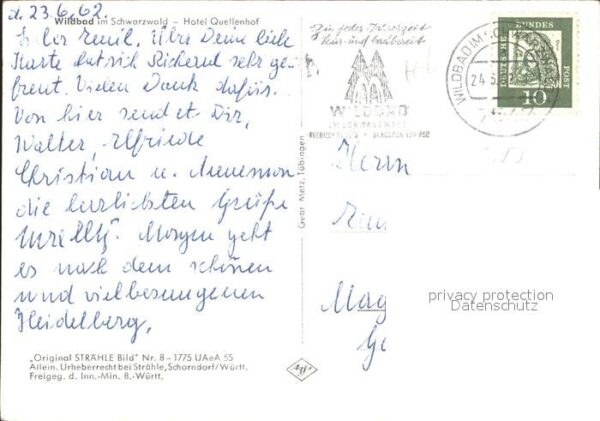 d. 23.6.62.
Wildbad im Schwarzwald – Hotel Quellenhof
Lieber Emil, Über Deine liebe
Karte hat sich Richard sehr ge-
freut. Vielen Dank dafür...
Von hier sendet Dir,
Walter, Elfriede
Christian u.
die herzlichsten Grüße
Morgen geht
es nach dem schönen
und vielbesungenen
Heidelberg.
„Original STRÄHLE Bild" Nr. 8–1775 UAeA 55
Allein. Urheberrecht bei Strähle, Schorndorf/Württ.
Freigeg. d. Inn.-Min. B.-Württ.
Gebr. Metz, Tübingen
Zu jeder Jahreszeit
Kur- und badebereit
WILDBAD
IM SCHWARZWALD
WILDBAD IM
24.6.
DEUTSCHE BUNDESPOST
10
Herrn
Mag
Ge
privacy protection
Datenschutz
Agfa